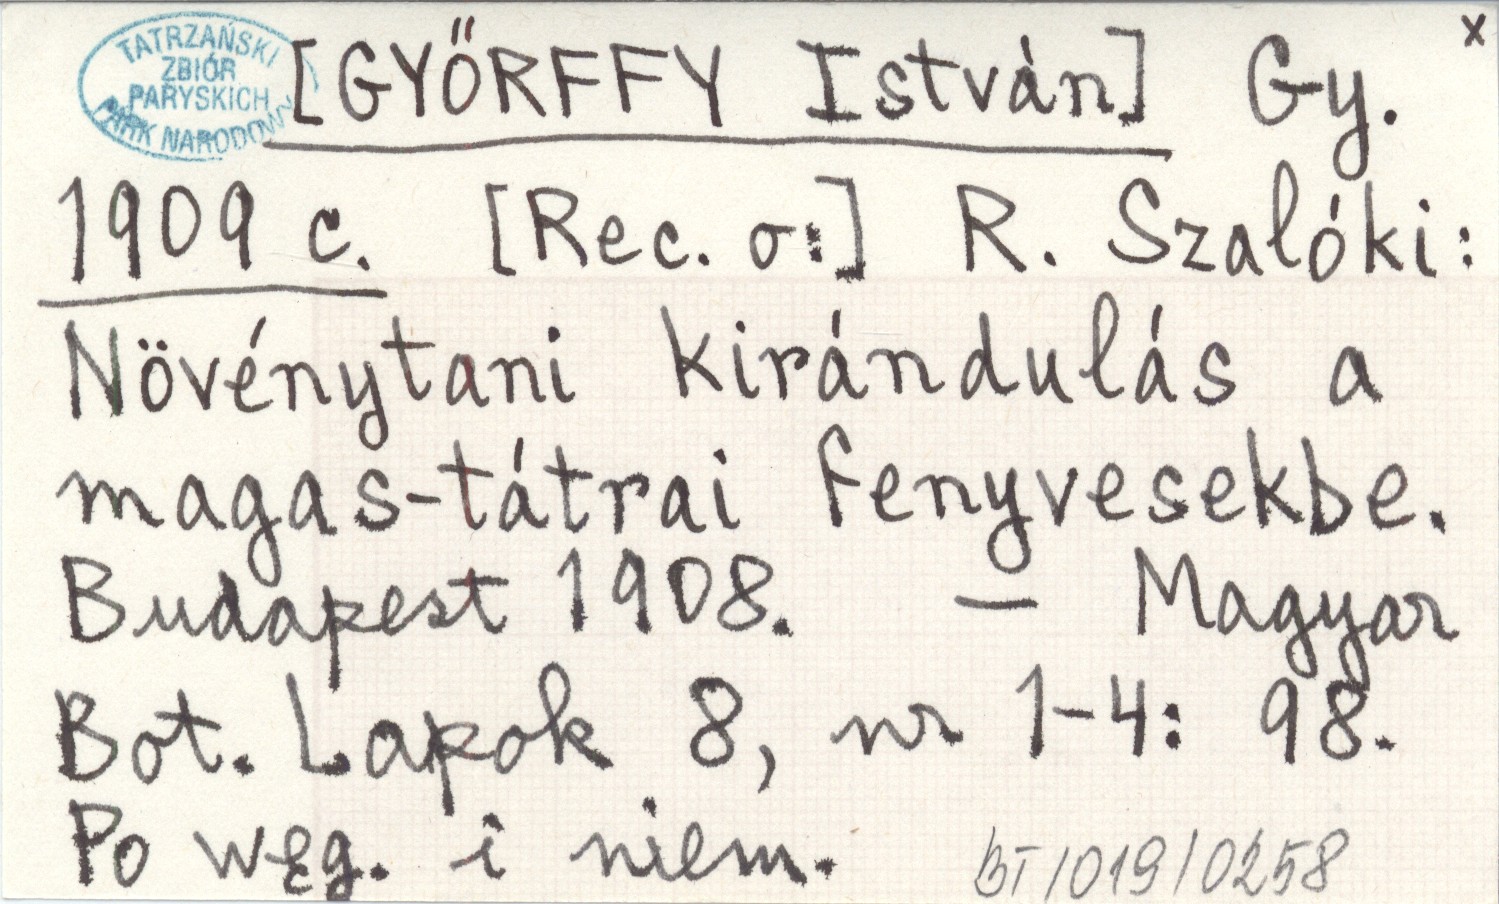 x
TATRZAŃSKI
ZBIÓR
PARYSKICH
PARK NARODOWY
[GYŐRFFY István] Gy.
1909 c. [Rec. o:] R. Szalóki:
Növénytani kirándulás a
magas-tátrai fenyvesekbe.
Budapest 1908. — Magyar
Bot. Lapok 8, nr 1-4: 98.
Po węg. i niem.
BT/019/0258